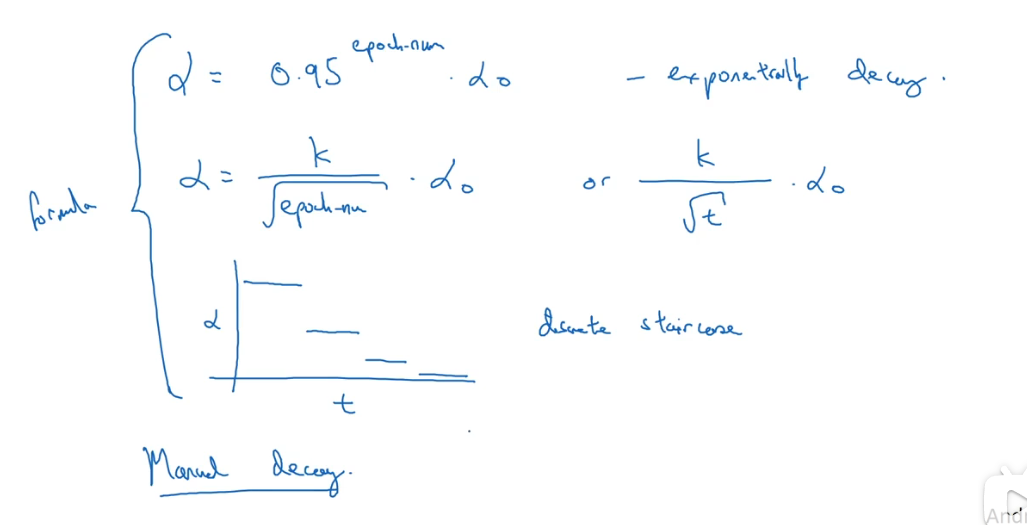 α = 0.95^epoch-num · α₀ - exponentially decay.
formula
α = k/√epoch-nu · α₀ or k/√t · α₀
α
discrete staircase
t
Manual decay.
Andr